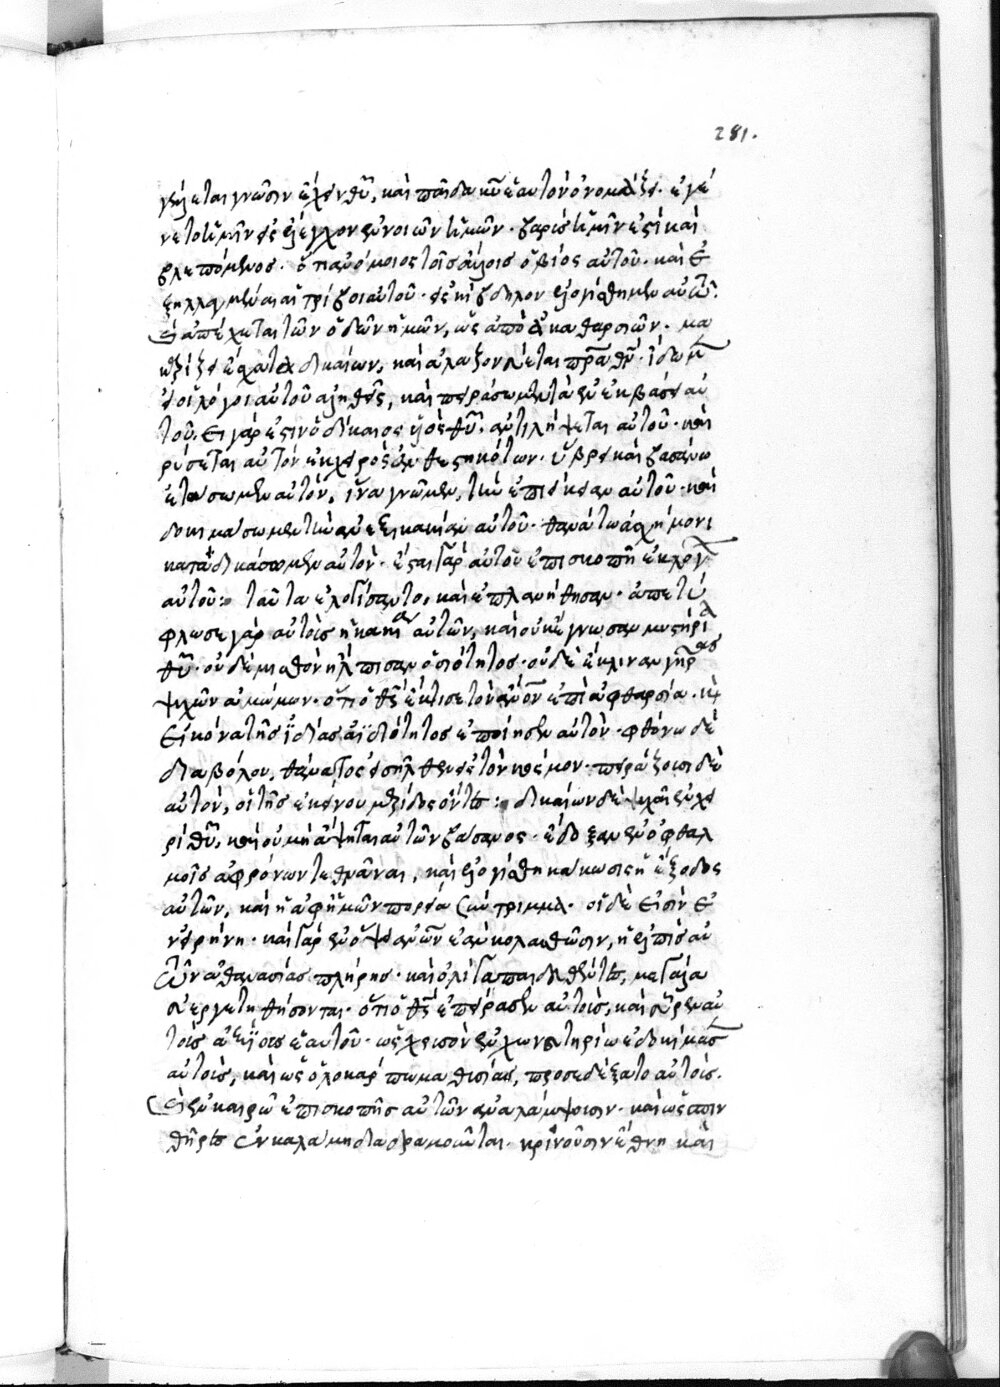 281.
γέλεται γνῶσιν ἔχειν θῦ, καὶ παῖδα κῦ ἑαυτὸν ὀνομάζει. ἐγέ
νετο ἡμῖν εἰς ἔλεγχον ἐννοιῶν ἡμῶν. βαρύς ἡμῖν ἐστὶ καὶ
βλεπόμενος. ὅτι ἀνόμοιος τοῖς ἄλλοις ὁ βίος αὐτοῦ. καὶ ἐ
ξηλλαγμέναι αἱ τρίβοι αὐτοῦ. εἰς κίβδηλον ἐλογίσθημεν αὐτῶ.
καὶ ἀπέχεται τῶν ὁδῶν ἡμῶν, ὡς ἀπὸ ἀκαθαρσιῶν. μα
καρίζει ἔσχατα δικαίων, καὶ ἀλαζονεύεται πρα θν. ἴδωμεν
εἰ οἱ λόγοι αὐτοῦ ἀληθεῖς, καὶ πειράσωμεν τὰ ἐν ἐκβάσει αὐ
τοῦ. εἰ γάρ ἐστιν ὁ δίκαιος υἱὸς θῦ. ἀντιλήψεται αὐτοῦ. καὶ
ρύσεται αὐτὸν ἐκ χειρὸς ἀνθεστηκότων. ὕβρει καὶ βασάνω
ἐτάσωμεν αὐτόν, ἵνα γνῶμεν, τὴν ἐπιείκειαν αὐτοῦ. καὶ
δοκιμάσωμεν τὴν ἀνεξικακίαν αὐτοῦ. θανάτω ἀσχήμονι
καταδικάσωμεν αὐτόν. ἔσται γὰρ αὐτοῦ ἐπισκοπὴ ἐκ λόγων
αὐτοῦ: ταῦτα ἐλογίσαντο, καὶ ἐπλανήθησαν. ἀπετύ
φλωσε γὰρ αὐτοὺς ἡ κακία αὐτῶν, καὶ οὐκ ἔγνωσαν μυστήρια
θῦ. οὐδὲ μισθὸν ἤλπισαν ὁσιότητος. οὐδὲ ἔκλιναν γέρας
ψυχῶν ἀμώμων. ὅτι ὁ θς ἔκτισε τὸν ἀνον ἐπὶ ἀφθαρσία. καὶ
εἰκόνα τῆς ἰδίας ἀϊδιότητος ἐποίησεν αὐτόν. φθόνω δὲ
διαβόλου, θάνατος εἰσῆλθεν εἰς τὸν κόσμον. πειράζουσι δὲ
αὐτόν, οἱ τῆς ἐκείνου μερίδος ὄντες: δικαίων δὲ ψυχαὶ ἐν χει
ρὶ θῦ, καὶ οὐ μὴ ἅψηται αὐτῶν βάσανος. ἔδοξαν ἐν ὀφθαλ
μοῖς ἀφρόνων τεθνάναι, καὶ ἐλογίσθη κάκωσις ἡ ἔξοδος
αὐτῶν, καὶ ἡ ἀφ ἡμῶν πορεία σύντριμμα. οἱ δὲ εἰσὶν ἐ
ν εἰρήνη. καὶ γὰρ ἐν ὄψει ἀνῶν ἐὰν κολασθῶσιν, ἡ ἐλπὶς αὐ
τῶν ἀθανασίας πλήρης. καὶ ὀλίγα παιδευθέντες, μεγάλα
εὐεργετηθήσονται. ὅτι ὁ θς ἐπείρασεν αὐτοὺς, καὶ εὗρεν αὐ
τοὺς ἀξίους ἑαυτοῦ. ὡς χρυσὸν ἐν χωνευτηρίω ἐδοκίμασεν
αὐτοὺς, καὶ ὡς ὁλοκάρπωμα θυσίας, προσεδέξατο αὐτούς.
καὶ ἐν καιρῶ ἐπισκοπῆς αὐτῶν ἀναλάμψουσιν. καὶ ὡς σπιν
θῆρες ἐν καλάμη διαδραμοῦνται. κρινοῦσιν ἔθνη καὶ